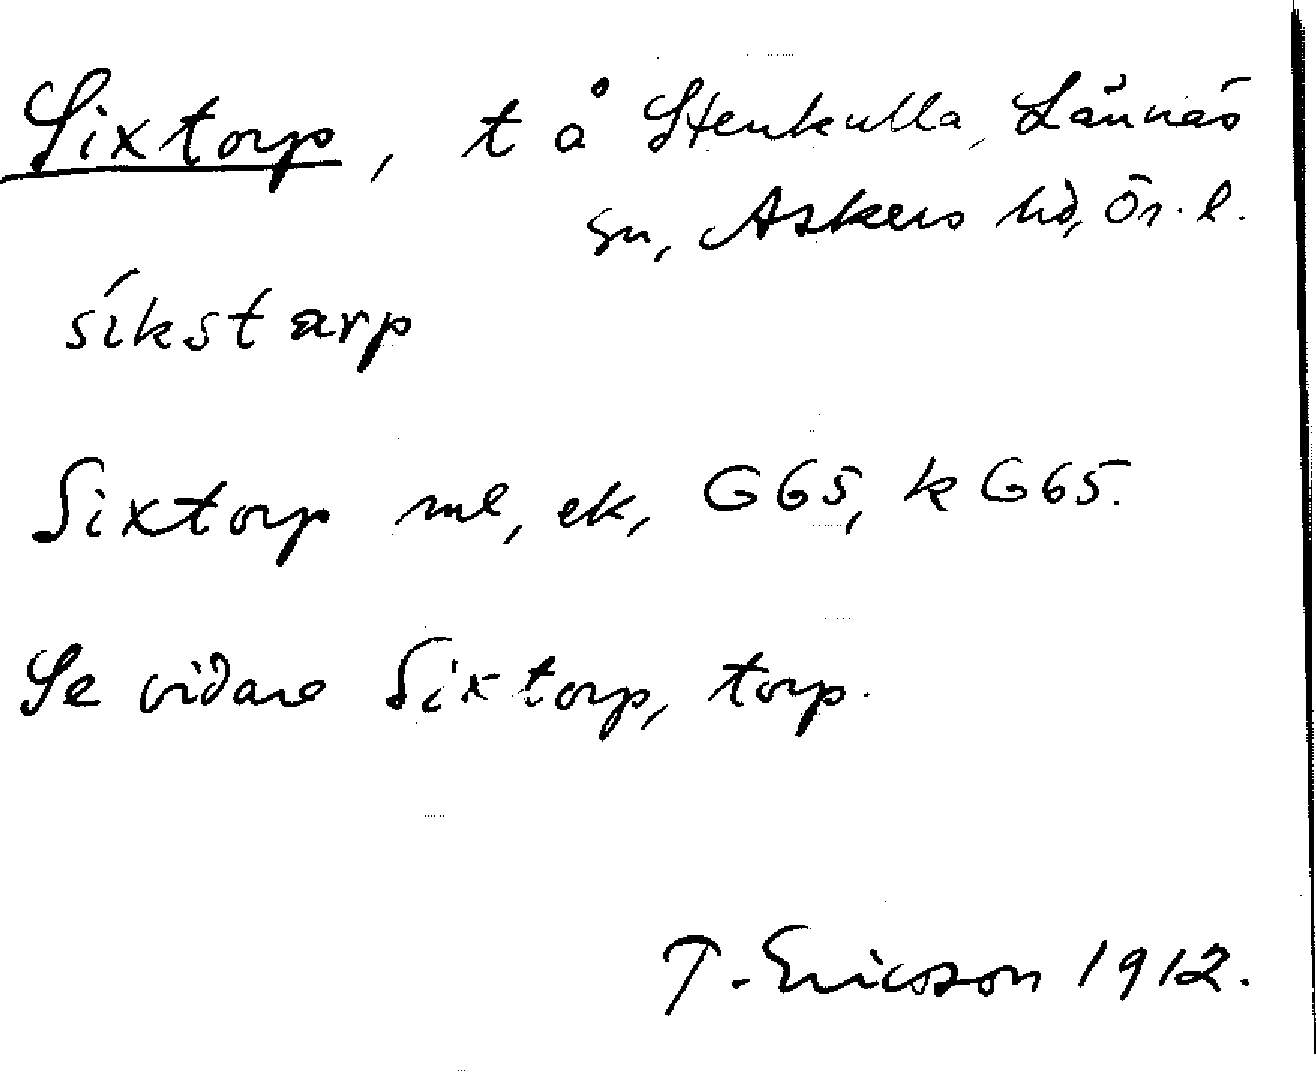 Sixtorp, t å Stenkulla, Lännäs
sn, Askers hd, Ör. l.
síkstarp
Sixtorp ml, ek, G65, k G65.
Se vidare Sixtorp, torp.
T. Ericsson 1912.